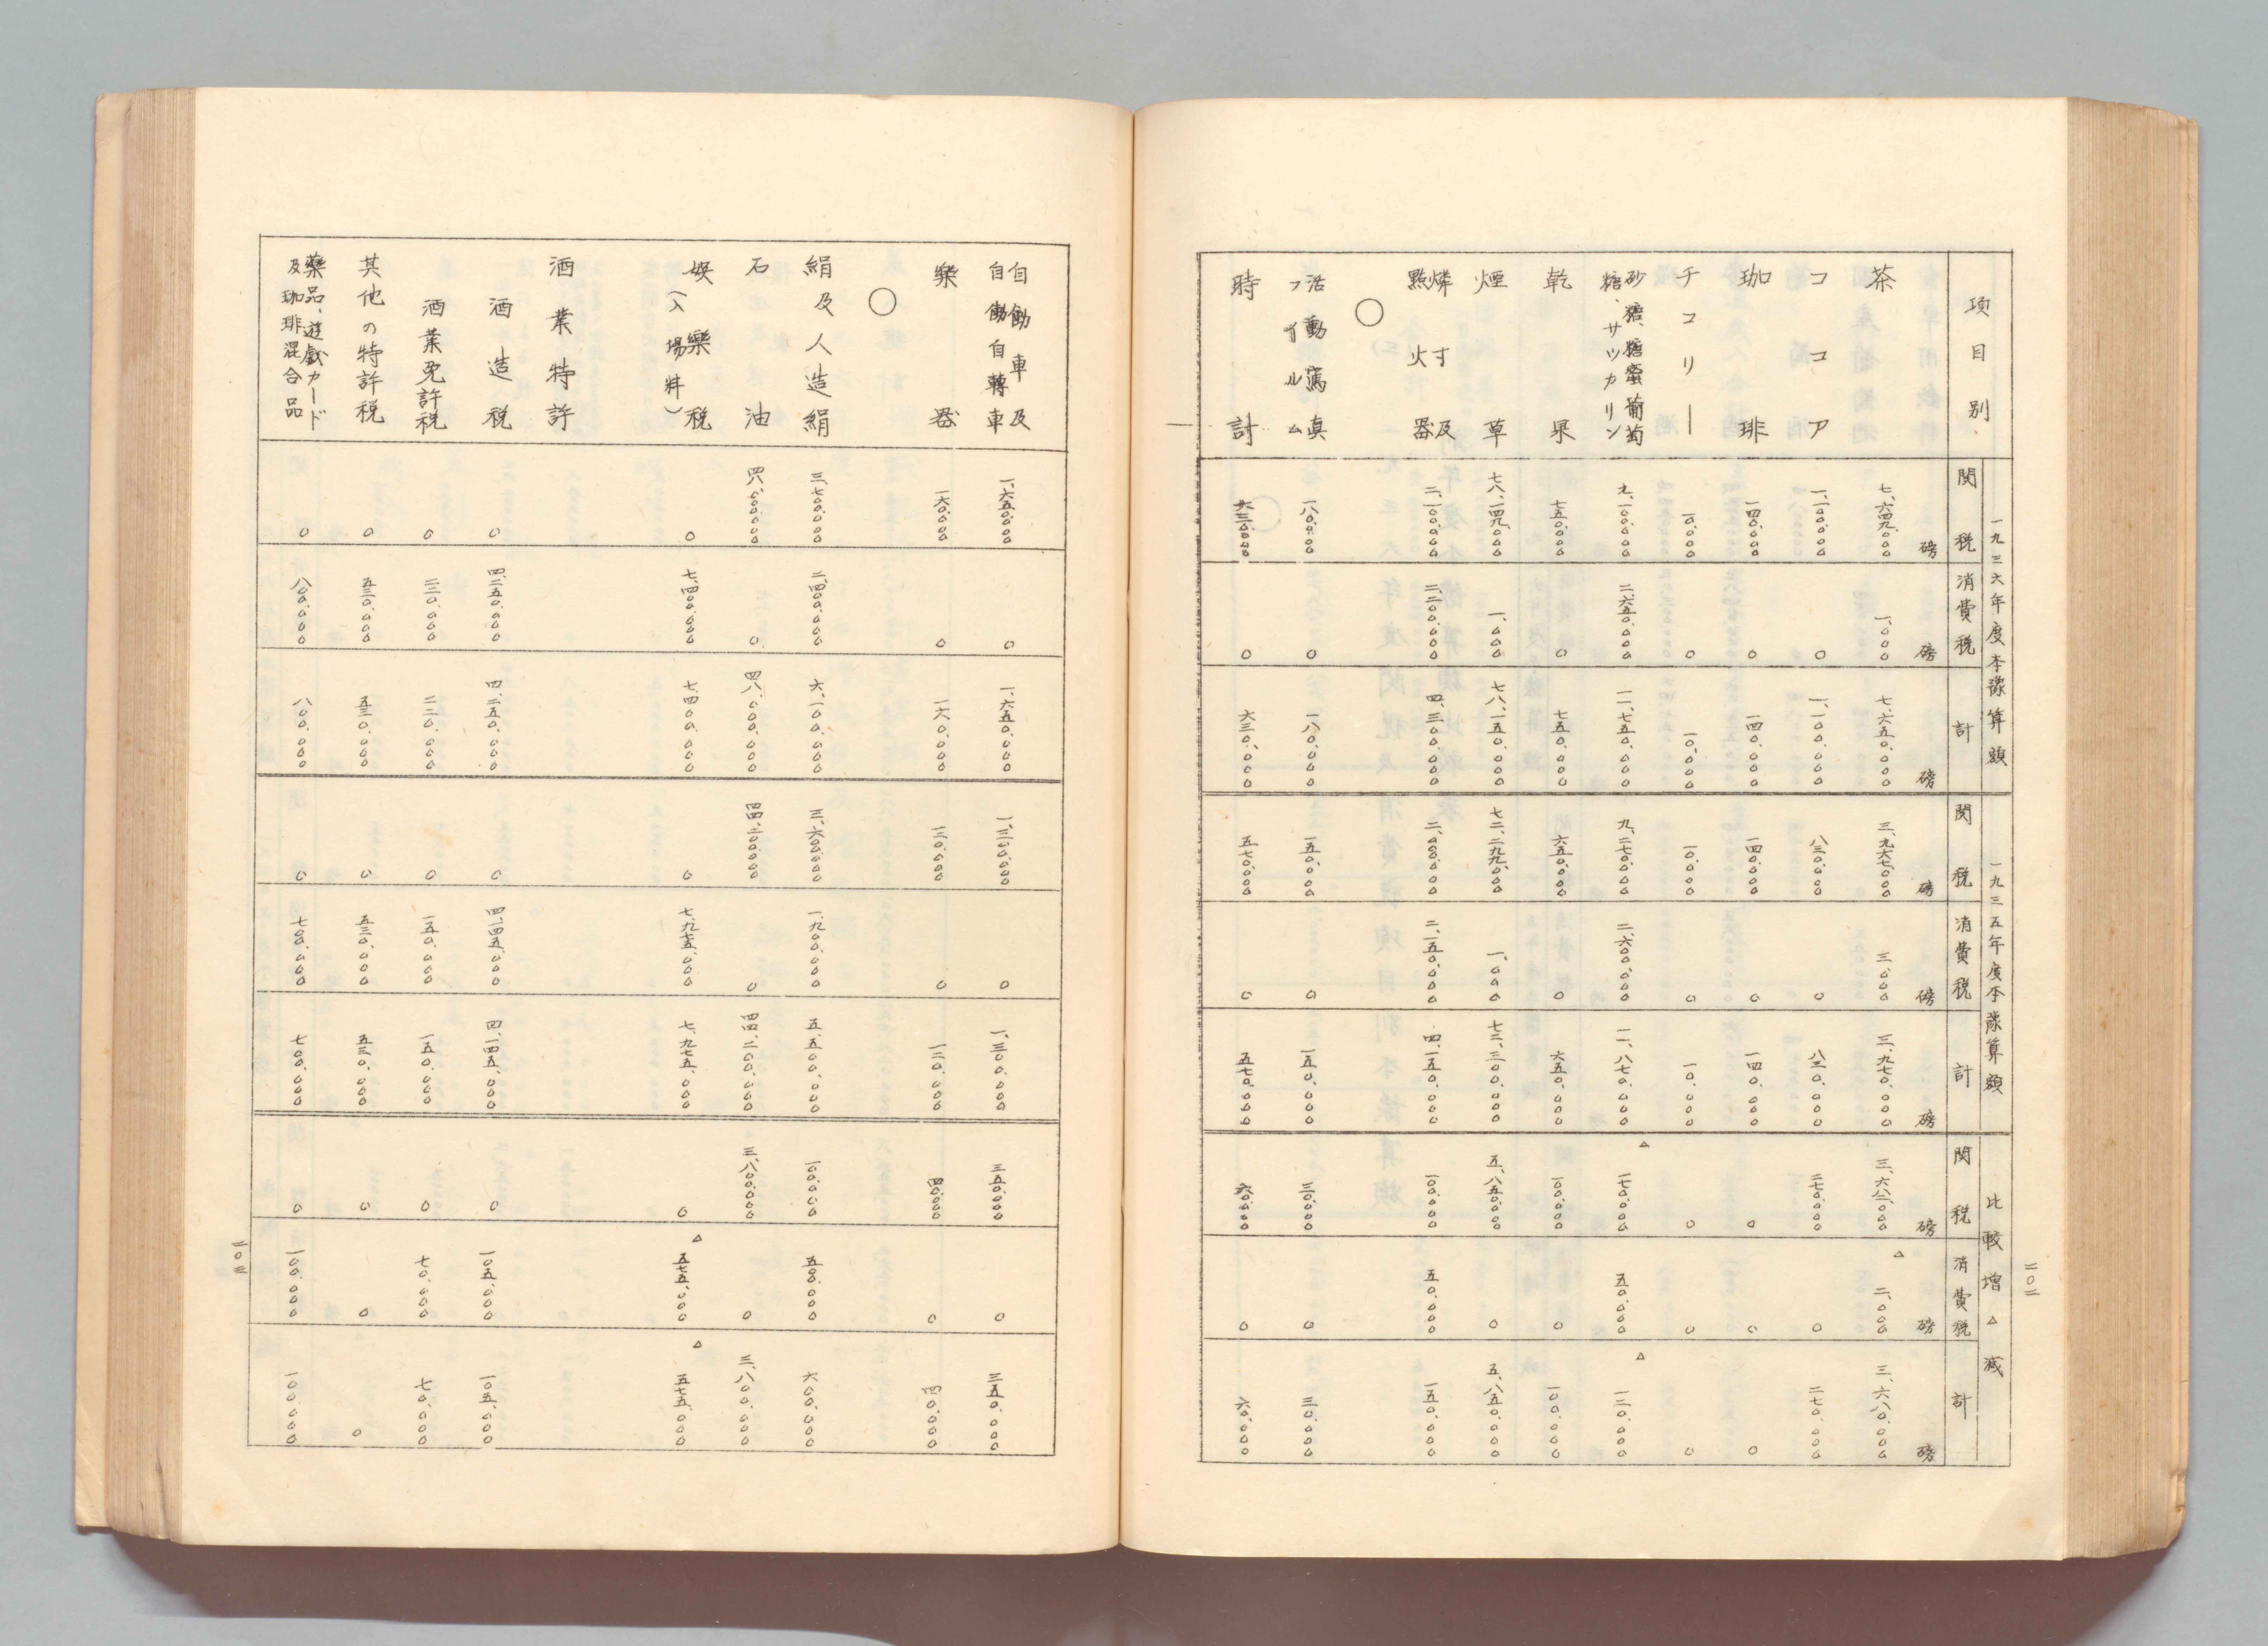 二〇二
一九三六年度本豫算額 一九三五年度本豫算額 比較増△減
項目別 関税 消費税 計 関税 消費税 計 関税 消費税 計
磅 磅 磅 磅 磅 磅 磅 磅 磅
茶 七、六四九、〇〇〇 一、〇〇〇 七、六五〇、〇〇〇 三、九六七、〇〇〇 三、〇〇〇 三、九七〇、〇〇〇 三、六八二、〇〇〇 △二、〇〇〇 三、六八〇、〇〇〇
ココア 一、一〇〇、〇〇〇 〇 一、一〇〇、〇〇〇 八三〇、〇〇〇 〇 八三〇、〇〇〇 二七〇、〇〇〇 〇 二七〇、〇〇〇
珈琲 一四〇、〇〇〇 〇 一四〇、〇〇〇 一四〇、〇〇〇 〇 一四〇、〇〇〇 〇 〇 〇
チコリー 一〇、〇〇〇 〇 一〇、〇〇〇 一〇、〇〇〇 〇 一〇、〇〇〇 〇 〇 〇
砂糖、糖蜜葡萄
糖、サツカリン 九、一〇〇、〇〇〇 二、六五〇、〇〇〇 一一、七五〇、〇〇〇 九、二七〇、〇〇〇 二、六〇〇、〇〇〇 一一、八七〇、〇〇〇 △一七〇、〇〇〇 五〇、〇〇〇 △一二〇、〇〇〇
乾果 七五〇、〇〇〇 〇 七五〇、〇〇〇 六五〇、〇〇〇 〇 六五〇、〇〇〇 一〇〇、〇〇〇 〇 一〇〇、〇〇〇
煙草 七八、一四九、〇〇〇 一、〇〇〇 七八、一五〇、〇〇〇 七二、二九九、〇〇〇 一、〇〇〇 七二、三〇〇、〇〇〇 五、八五〇、〇〇〇 〇 五、八五〇、〇〇〇
燐寸及
點火器 二、一〇〇、〇〇〇 二、二〇〇、〇〇〇 四、三〇〇、〇〇〇 二、〇〇〇、〇〇〇 二、一五〇、〇〇〇 四、一五〇、〇〇〇 一〇〇、〇〇〇 五〇、〇〇〇 一五〇、〇〇〇
〇
活動寫眞
フイルム 一八〇、〇〇〇 〇 一八〇、〇〇〇 一五〇、〇〇〇 〇 一五〇、〇〇〇 三〇、〇〇〇 〇 三〇、〇〇〇
時計 六三〇、〇〇〇 〇 六三〇、〇〇〇 五七〇、〇〇〇 〇 五七〇、〇〇〇 六〇、〇〇〇 〇 六〇、〇〇〇
自働車及
自働自轉車 一、六五〇、〇〇〇 〇 一、六五〇、〇〇〇 一、三〇〇、〇〇〇 〇 一、三〇〇、〇〇〇 三五〇、〇〇〇 〇 三五〇、〇〇〇
樂器 一六〇、〇〇〇 〇 一六〇、〇〇〇 一二〇、〇〇〇 〇 一二〇、〇〇〇 四〇、〇〇〇 〇 四〇、〇〇〇
〇
絹及人造絹 三、七〇〇、〇〇〇 二、四〇〇、〇〇〇 六、一〇〇、〇〇〇 三、六〇〇、〇〇〇 一、九〇〇、〇〇〇 五、五〇〇、〇〇〇 一〇〇、〇〇〇 五〇〇、〇〇〇 六〇〇、〇〇〇
石油 四八、〇〇〇、〇〇〇 〇 四八、〇〇〇、〇〇〇 四四、二〇〇、〇〇〇 〇 四四、二〇〇、〇〇〇 三、八〇〇、〇〇〇 〇 三、八〇〇、〇〇〇
娯樂税
(入場料) 〇 七、四〇〇、〇〇〇 七、四〇〇、〇〇〇 〇 七、九七五、〇〇〇 七、九七五、〇〇〇 〇 △五七五、〇〇〇 △五七五、〇〇〇
酒業特許
酒造税 〇 四、二五〇、〇〇〇 四、二五〇、〇〇〇 〇 四、一四五、〇〇〇 四、一四五、〇〇〇 〇 一〇五、〇〇〇 一〇五、〇〇〇
酒業免許税 〇 二二〇、〇〇〇 二二〇、〇〇〇 〇 一五〇、〇〇〇 一五〇、〇〇〇 〇 七〇、〇〇〇 七〇、〇〇〇
其他の特許税 〇 五三〇、〇〇〇 五三〇、〇〇〇 〇 五三〇、〇〇〇 五三〇、〇〇〇 〇 〇 〇
藥品、遊戯カード
及珈琲混合品 〇 八〇〇、〇〇〇 八〇〇、〇〇〇 〇 七〇〇、〇〇〇 七〇〇、〇〇〇 〇 一〇〇、〇〇〇 一〇〇、〇〇〇
二〇三